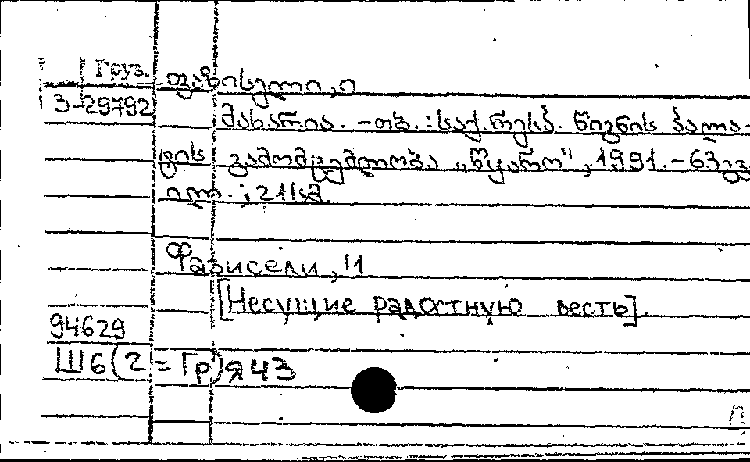 Груз.
ფაზისელი, ი
3-29792
მახარია. - თბ. : საქ. რესპ. წიგნის პალა-
ტის გამომცემლობა „წყარო", 1991. - 63 გვ
ილ. ; 21სმ.
Фазисели, И
[Несущие радостную весть].
94629
Ш6(2=Гр)я43